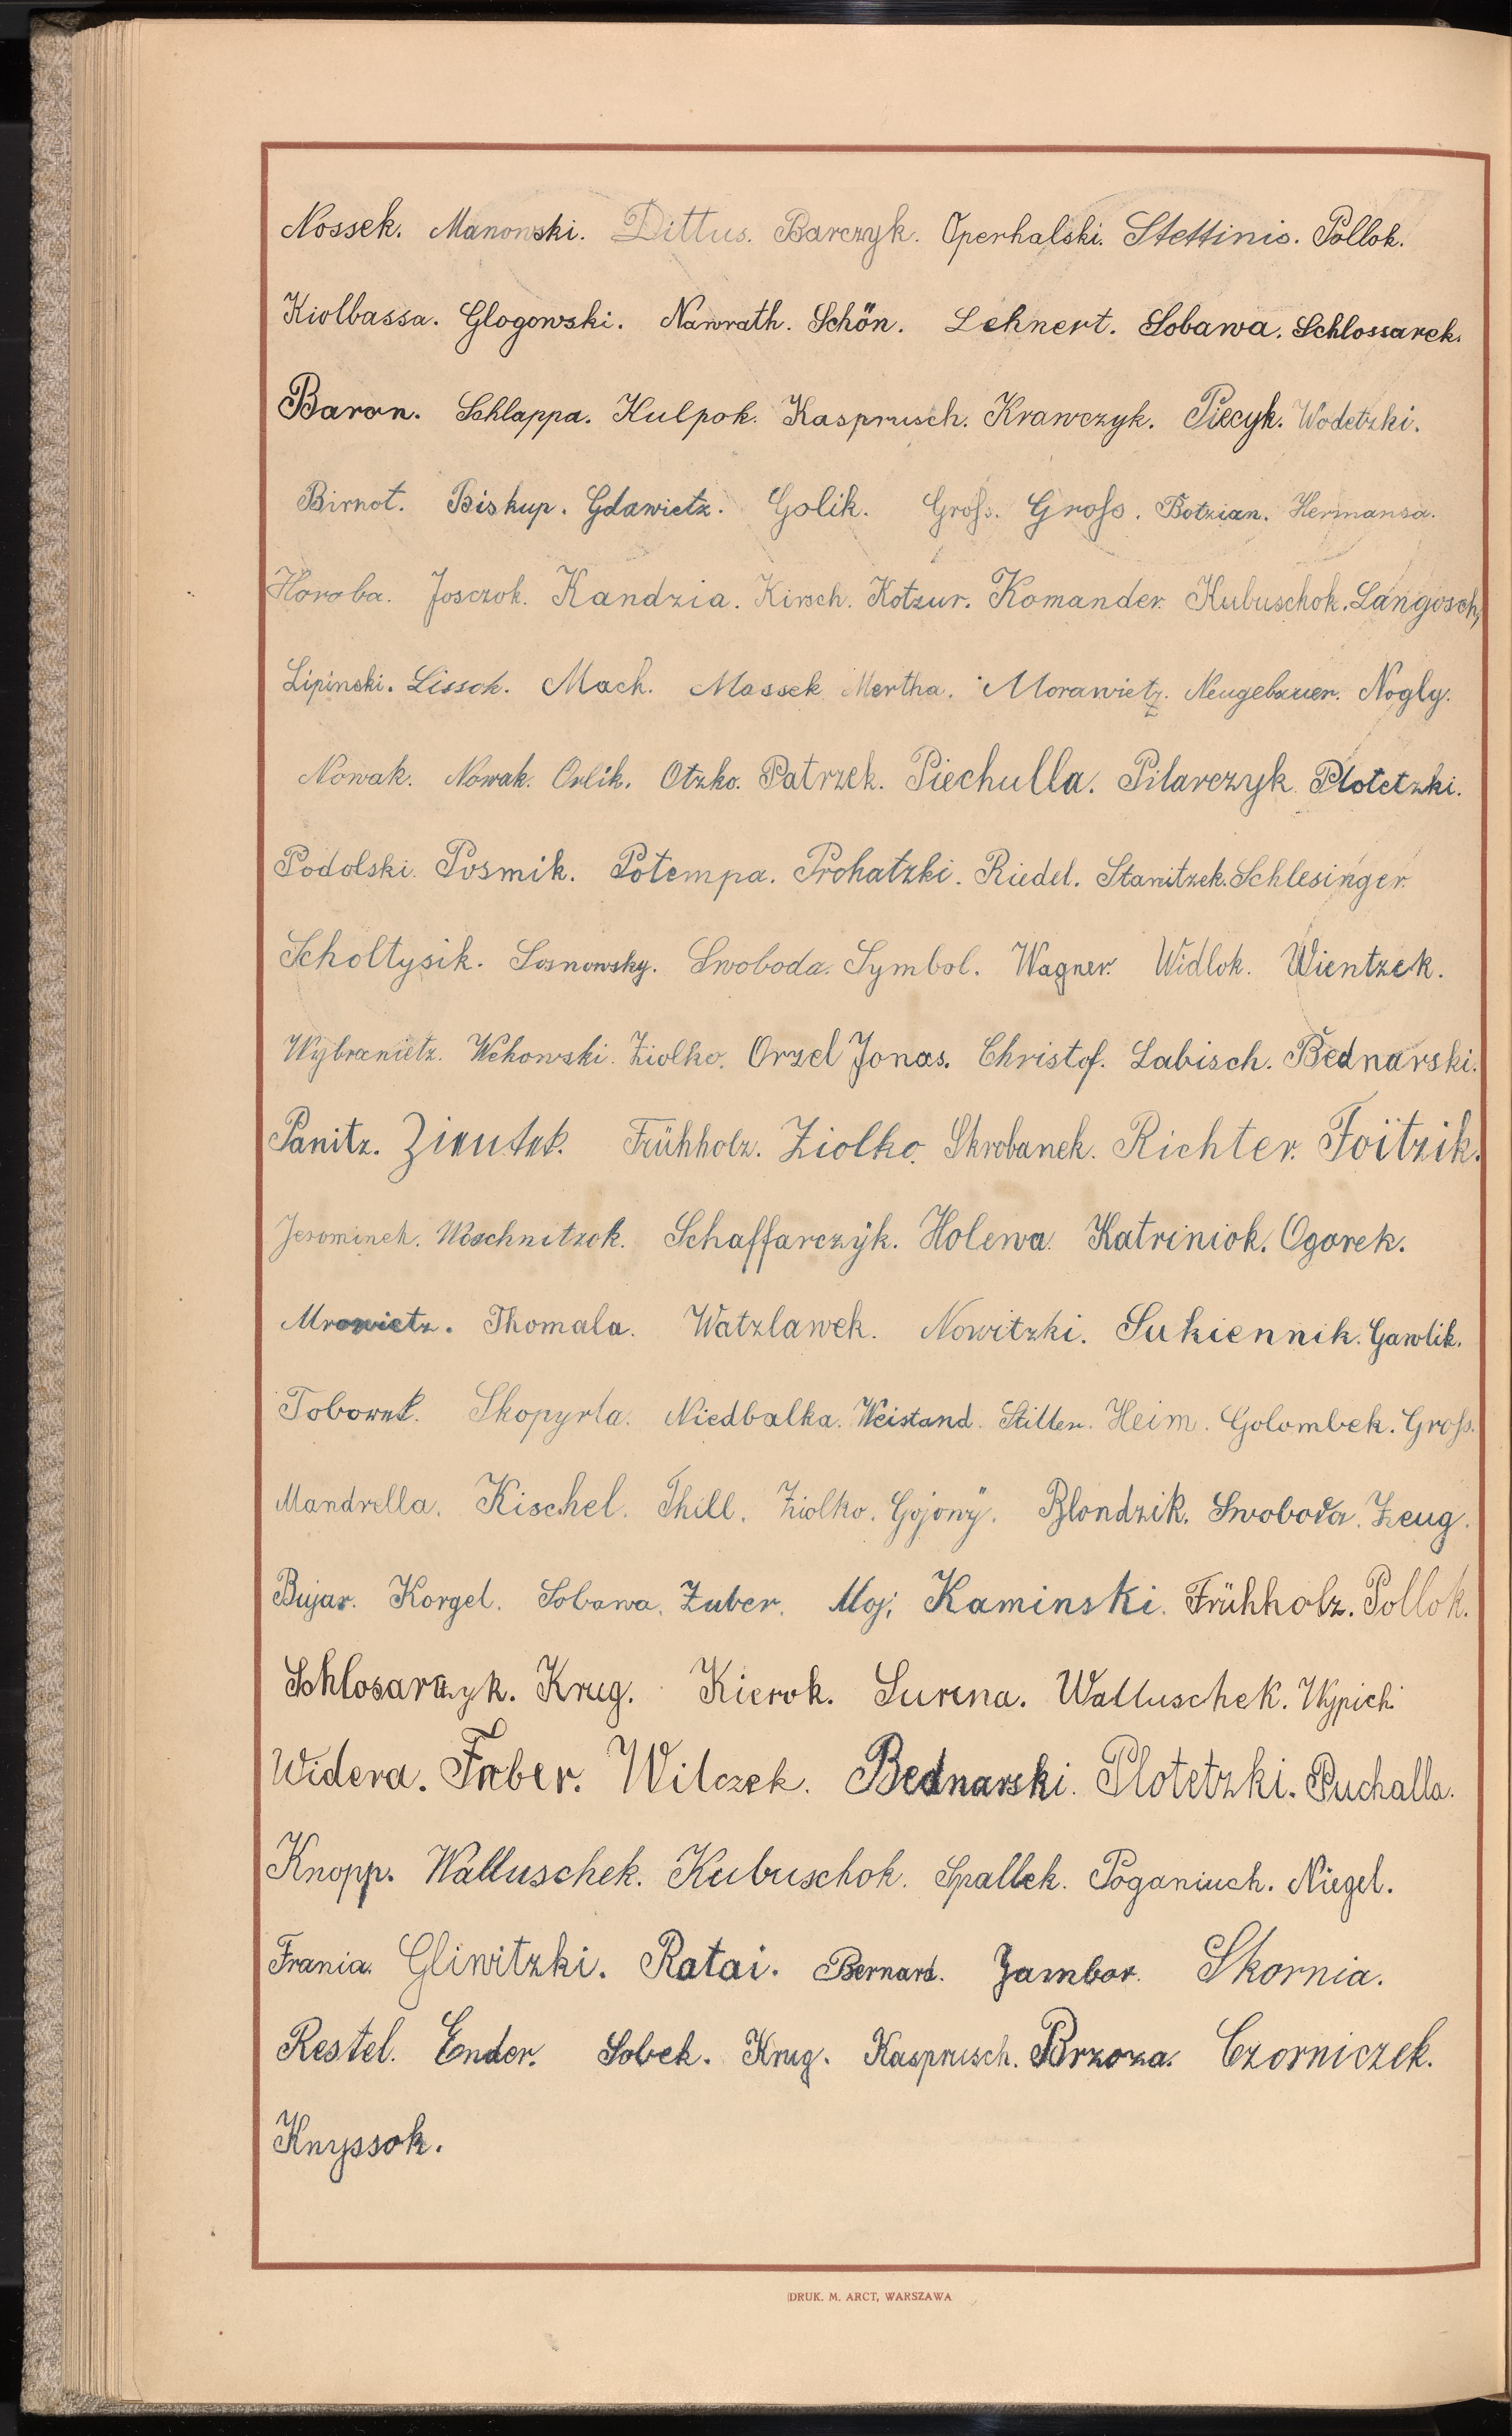 Nossek. Manowski. Dittus. Barczyk. Operhalski. Stettinis. Pollok.
Kiolbassa. Glogowski. Nawrath. Schön. Lehnert. Sobawa. Schlossarek.
Baron. Schlappa. Kulpok. Kasprusch. Krawczyk. Piecyk. Wodetzki.
Birnot. Biskup. Gdawietz. Golik. Groß. Groß. Botzian. Hermansa.
Horoba. Josczok. Kandzia. Kirsch. Kotzur. Komander. Kubuschok. Langosch,
Lipinski. Lissok. Mach. Massek Mertha. Morawietz. Neugebauer. Nogly.
Nowak. Nowak. Orlik. Otzko. Patrzek. Piechulla. Pilarczyk. Plotetzki.
Podolski. Posmik. Potempa. Prohatzki. Riedel. Stanitzek. Schlesinger.
Scholtysik. Sosnowsky. Swoboda. Symbol. Wagner. Widlok. Wientzek.
Wybranietz. Wehowski. Ziolko. Orzel Jonas. Christof. Labisch. Bednarski.
Panitz. Zientek. Frühholz. Ziolko. Skrobanek. Richter. Foitzik.
Jerominek. Woschnitzok. Schaffarczÿk. Holewa. Katriniok. Ogorek.
Mrowietz. Thomala. Watzlawek. Nowitzki. Sukiennik. Gawlik.
Toborek. Skopyrla. Niedbalka. Weistand. Stiller. Heim. Golombek. Groß.
Mandrella. Kischel. Thill. Ziolko. Gojonÿ. Blondzik. Swoboda. Zeug.
Bujar. Korgel. Sobawa. Zuber. Moj; Kaminski. Frühholz. Pollok.
Schlosarczyk. Krug. Kierok. Surma. Walluschek. Wypich.
Widera. Faber. Wilczek. Bednarski. Plotetzki. Puchalla.
Knopp. Walluschek. Kubuschok. Spallek. Poganiuch. Niegel.
Frania. Gliwitzki. Ratai. Bernard. Jambor. Skornia.
Restel. Ender. Sobek. Krug. Kasprusch. Brzoza. Czorniczek.
Knyssok.
DRUK. M. ARCT, WARSZAWA